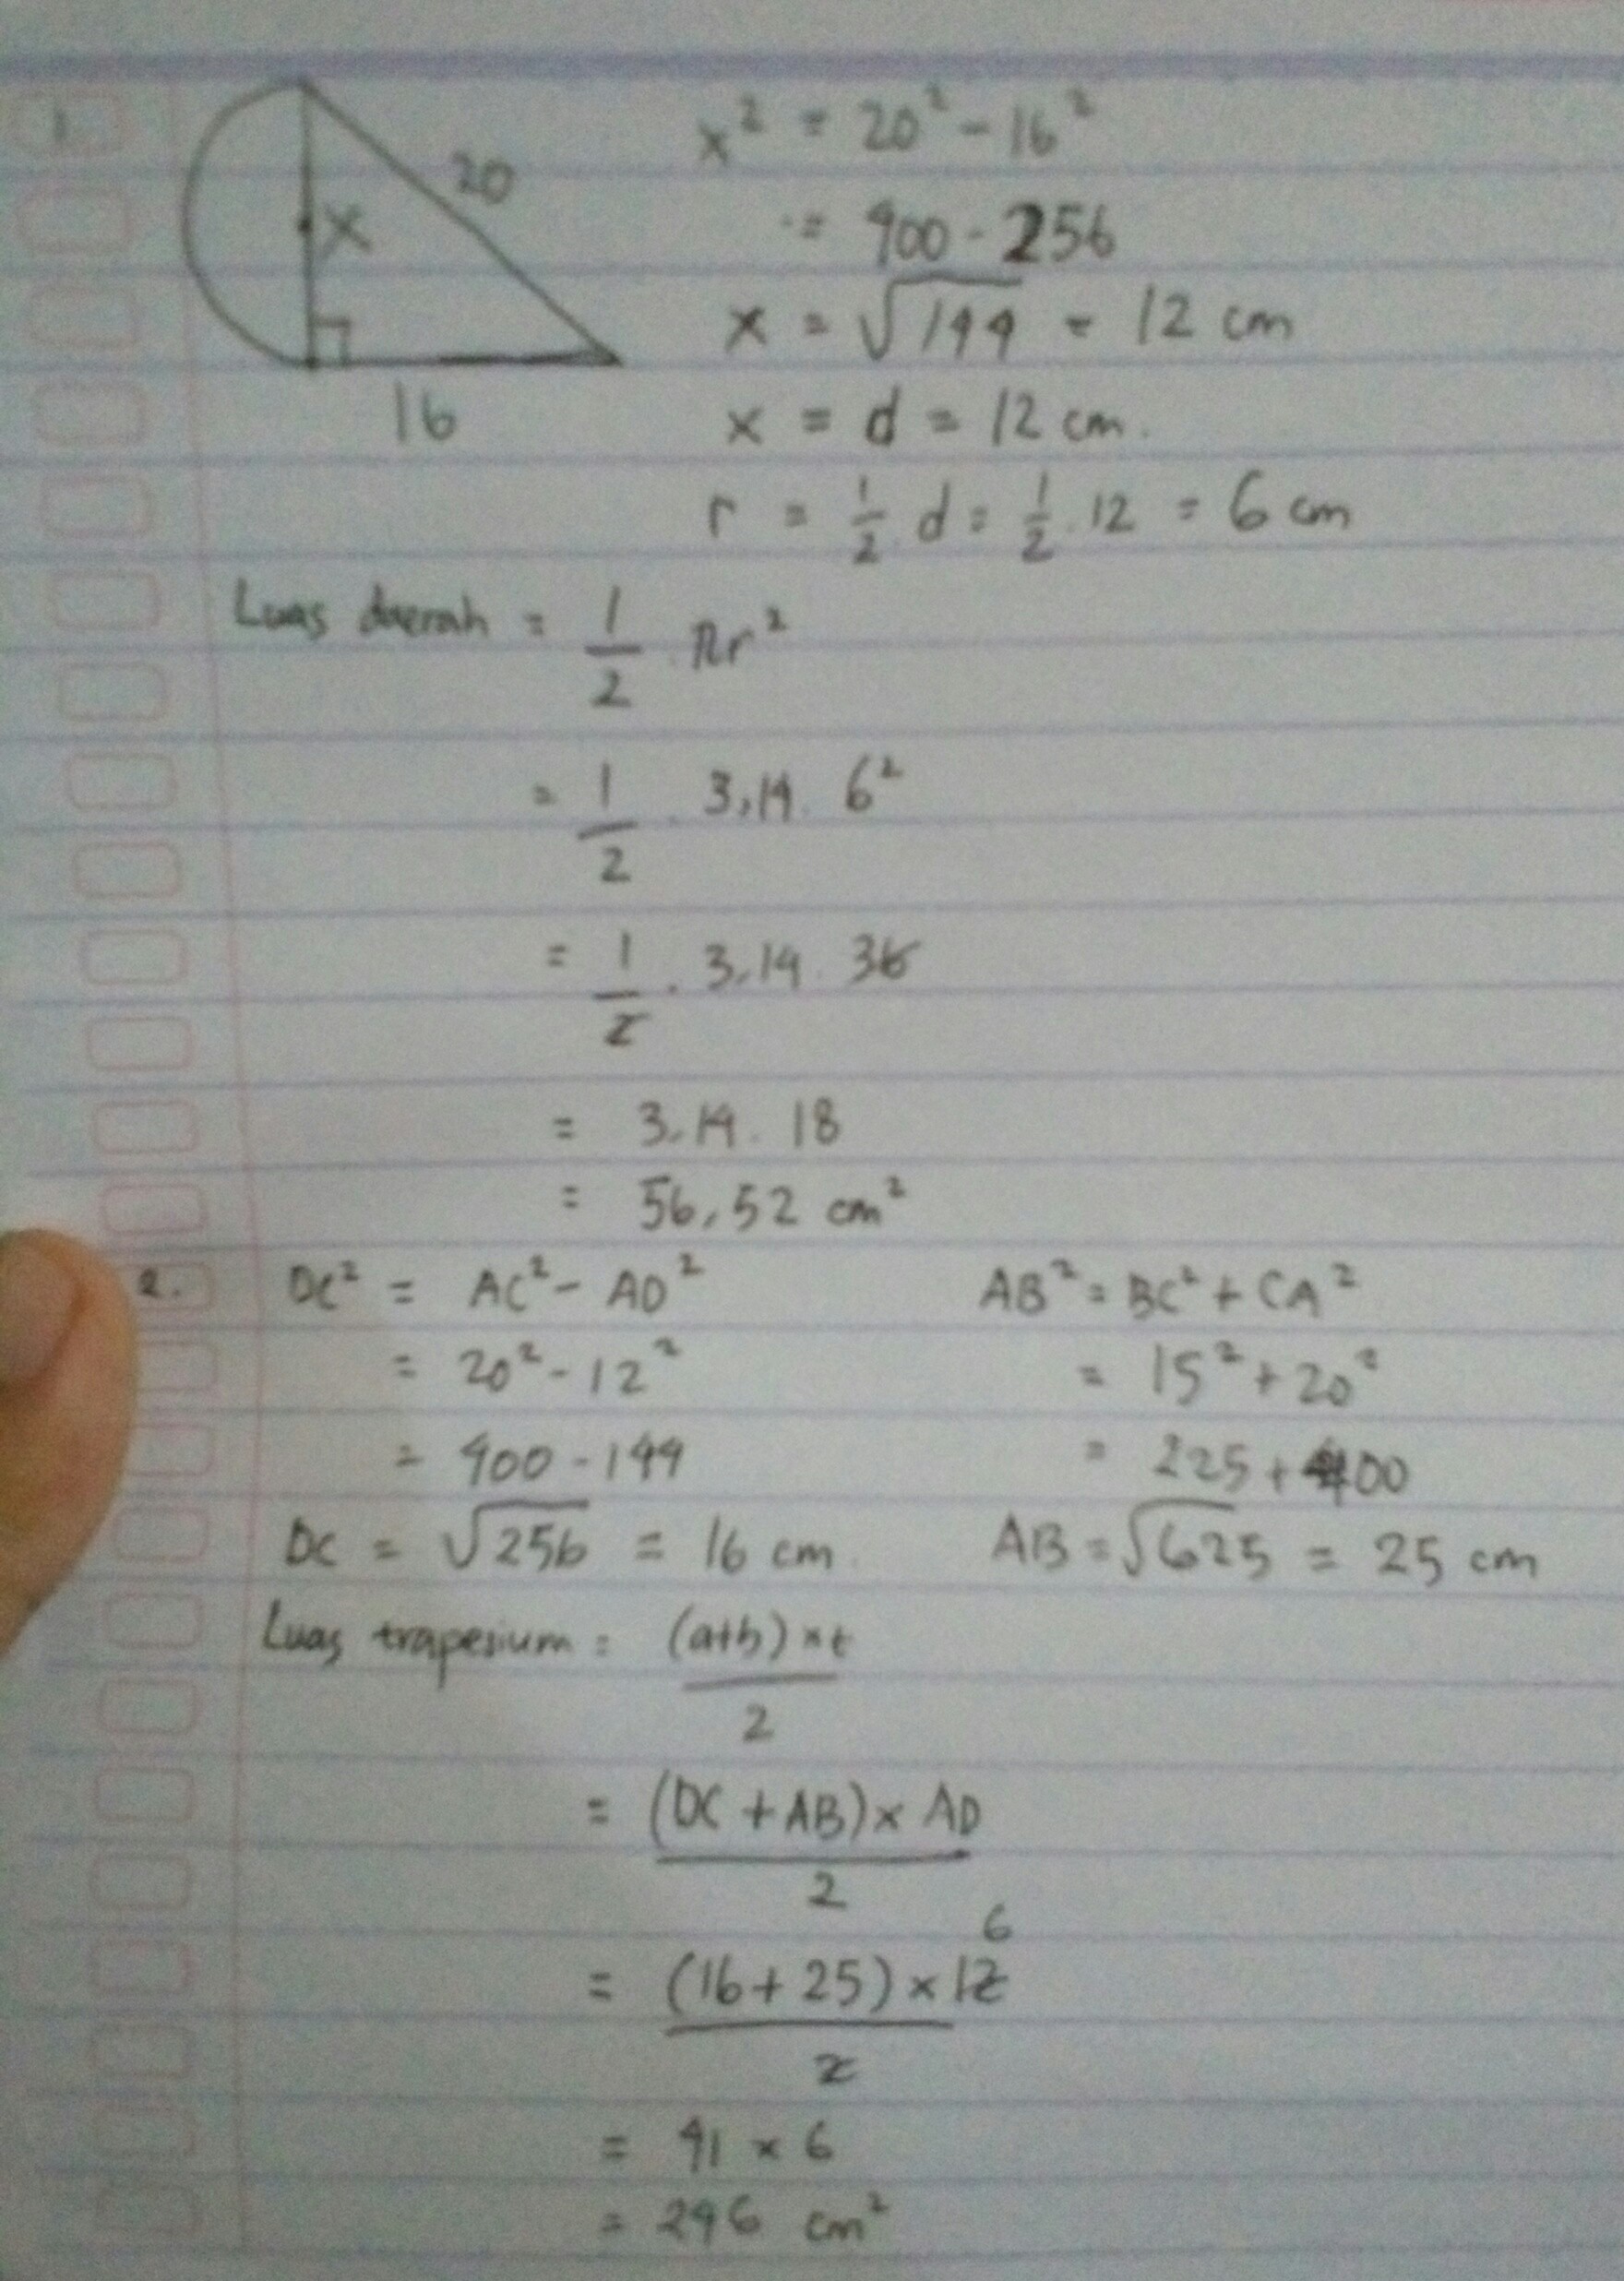 1
20
x
16
x² = 20² - 16²
= 400 - 256
x = √144 = 12 cm
x = d = 12 cm.
r = 1/2 d = 1/2 . 12 = 6 cm
Luas daerah = 1/2 . πr²
= 1/2 . 3,14 . 6²
= 1/2 . 3,14 . 36
= 3,14 . 18
= 56,52 cm²
2. DC² = AC² - AD²
= 20² - 12²
= 400 - 144
DC = √256 = 16 cm
AB² = BC² + CA²
= 15² + 20²
= 225 + 400
AB = √625 = 25 cm
Luas trapesium = (a+b) x t / 2
= (DC + AB) x AD / 2
6
= (16 + 25) x 12 / 2
= 41 x 6
= 246 cm²